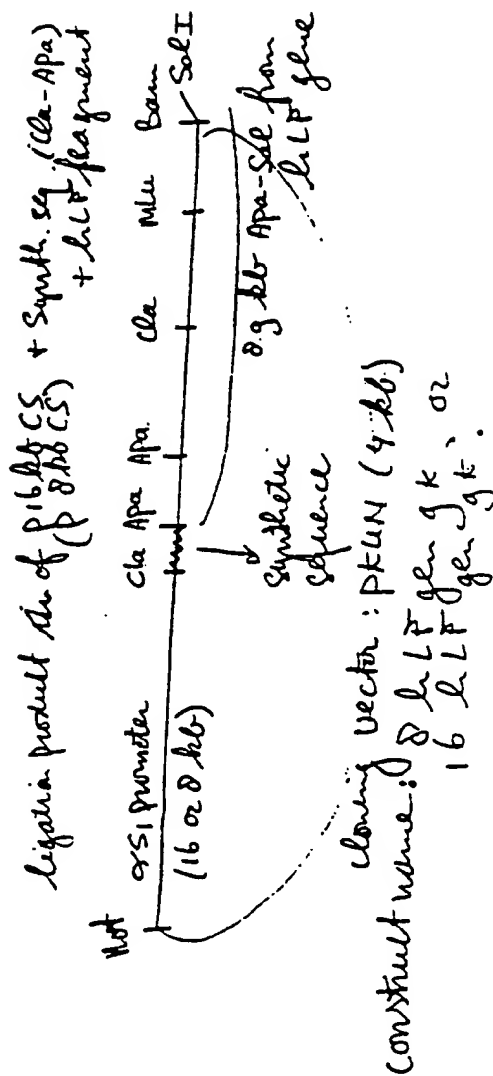 ligation product of p16kb CS + Synth. seq. (Cla-Apa)
(p 8kb CS) + hLF fragment
Not αS1 promoter Cla Apa Apa. Cla Mlu Bam Sal I
(16 or 8 kb)
Synthetic sequence
8.9 kb Apa-Sal from
hLF gene
cloning vector: pKUN (4 kb)
Construct name: 8 hLF gen 9 k, or
16 hLF gen 9 k.